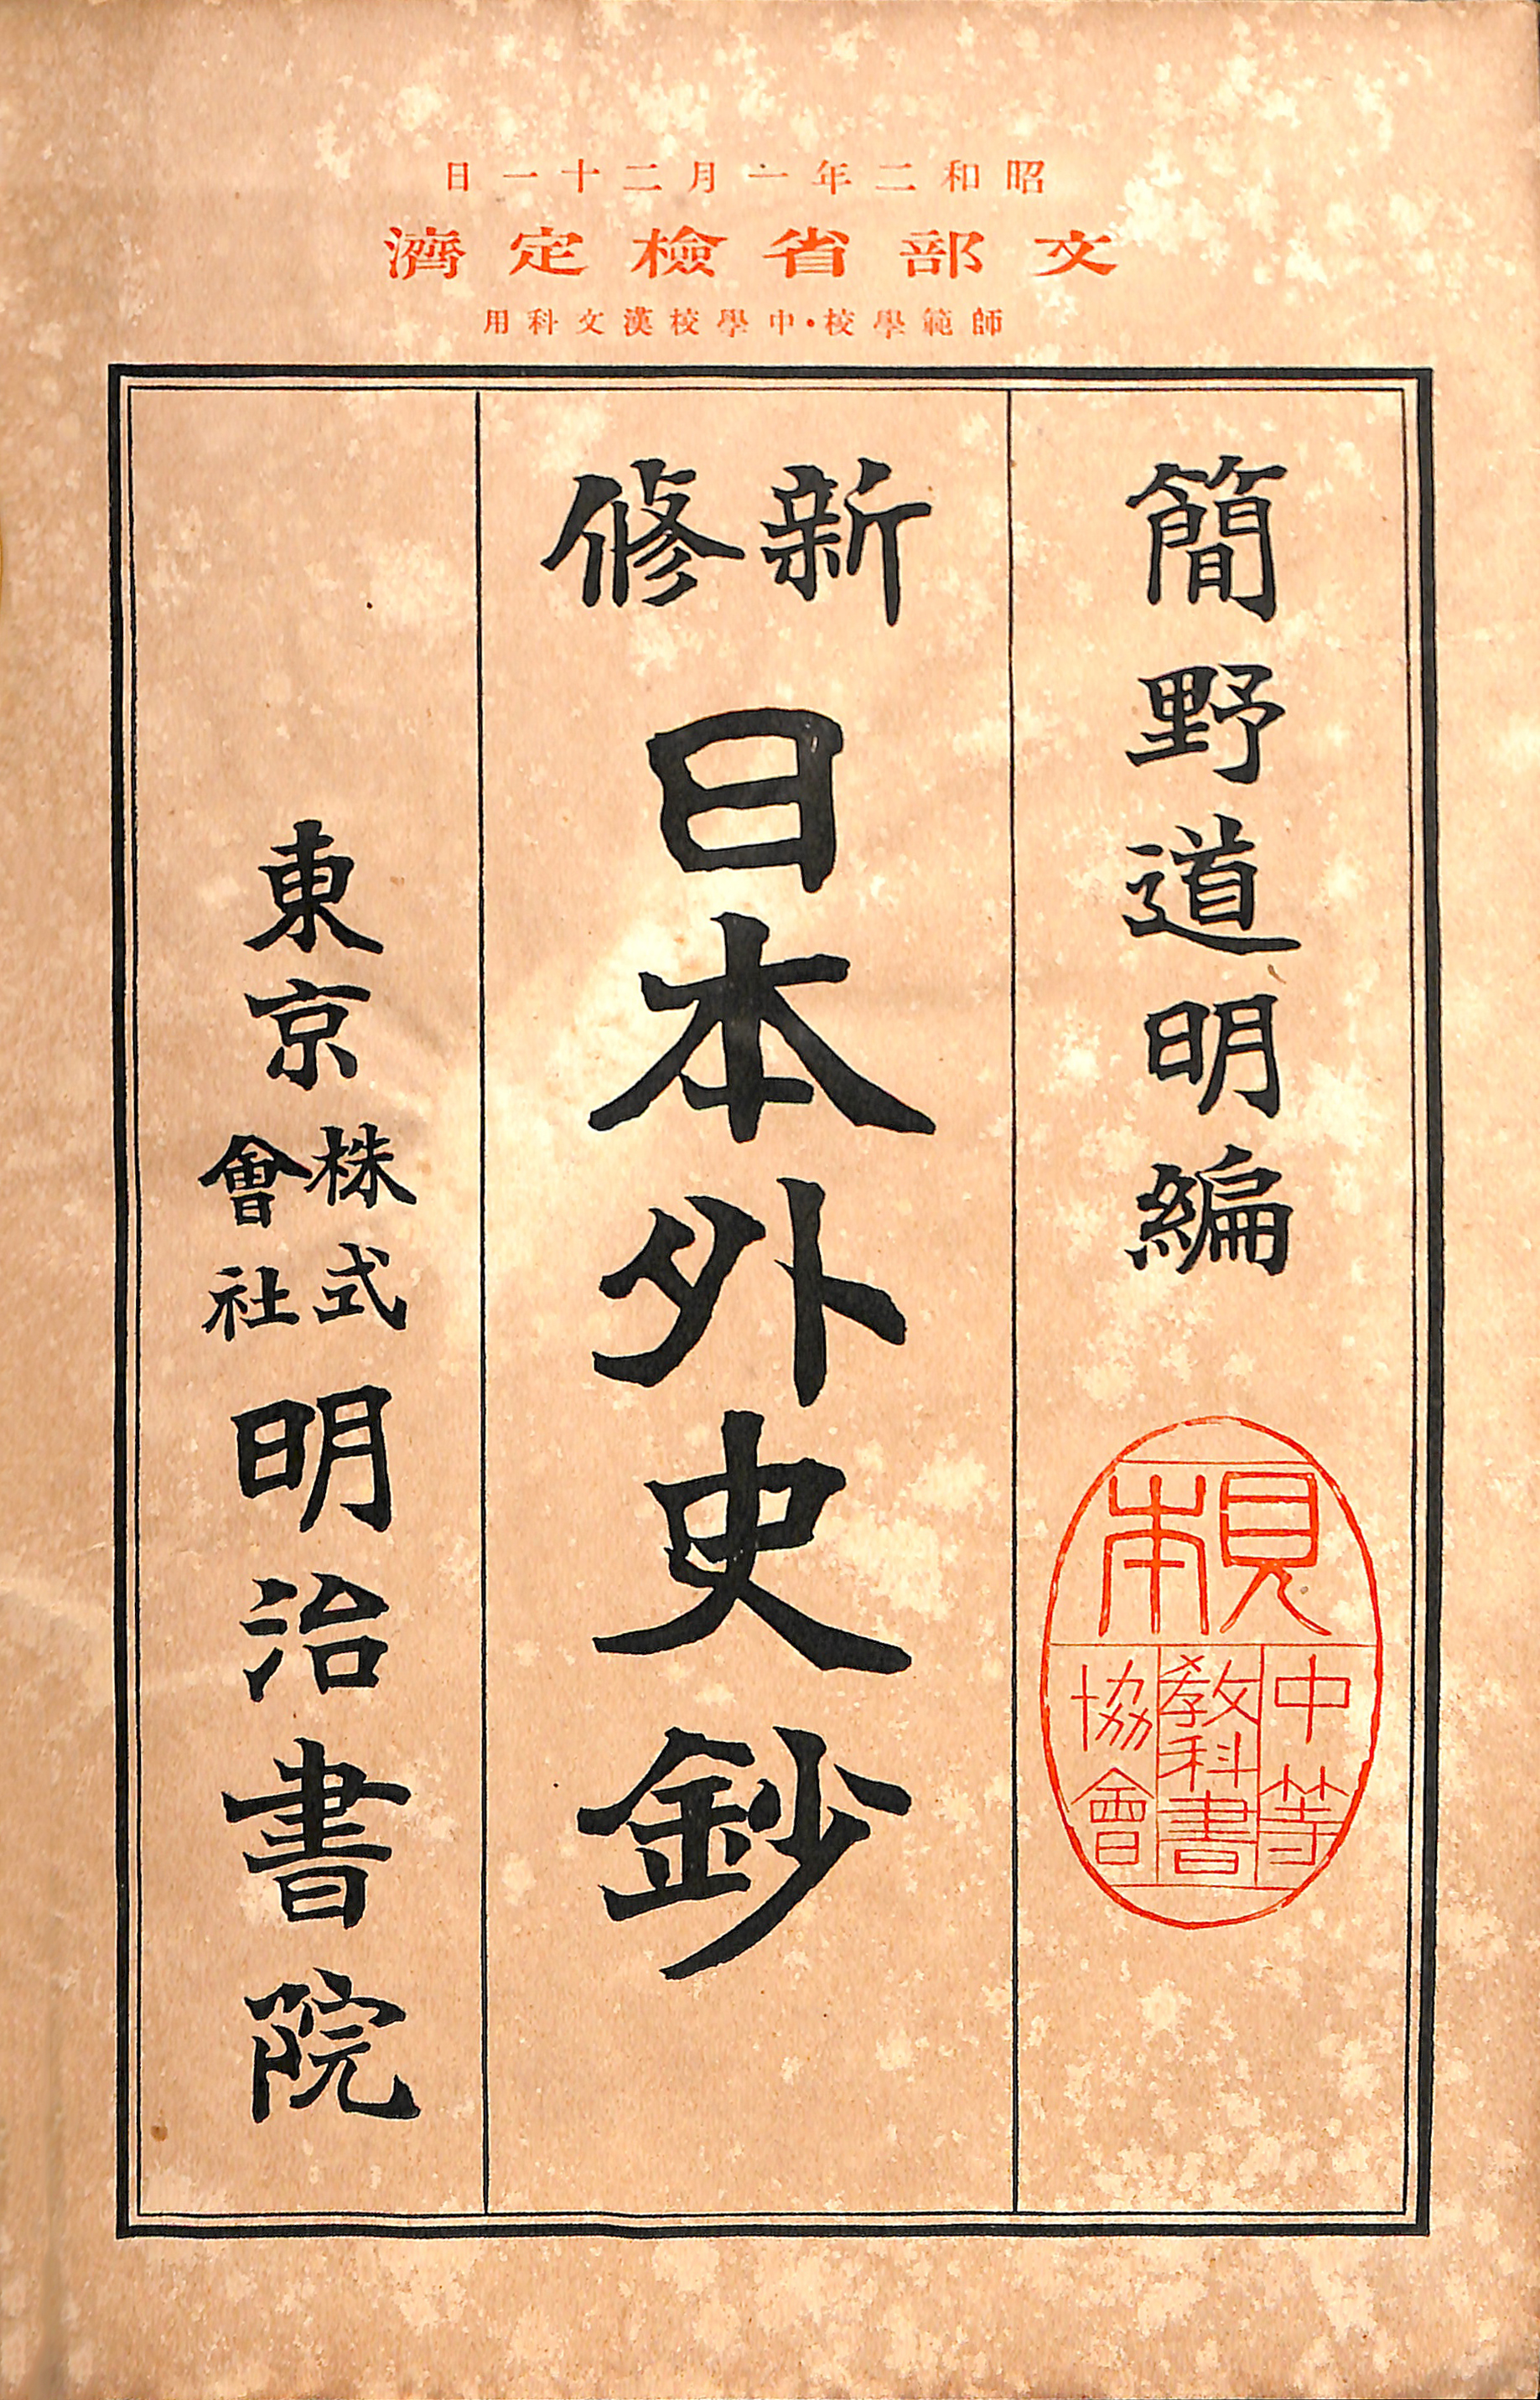 昭和二年一月二十一日
文部省檢定濟
師範學校・中學校漢文科用
簡野道明編
見本
中等
教科書
協會
新修
日本外史鈔
東京
株式
會社
明治書院